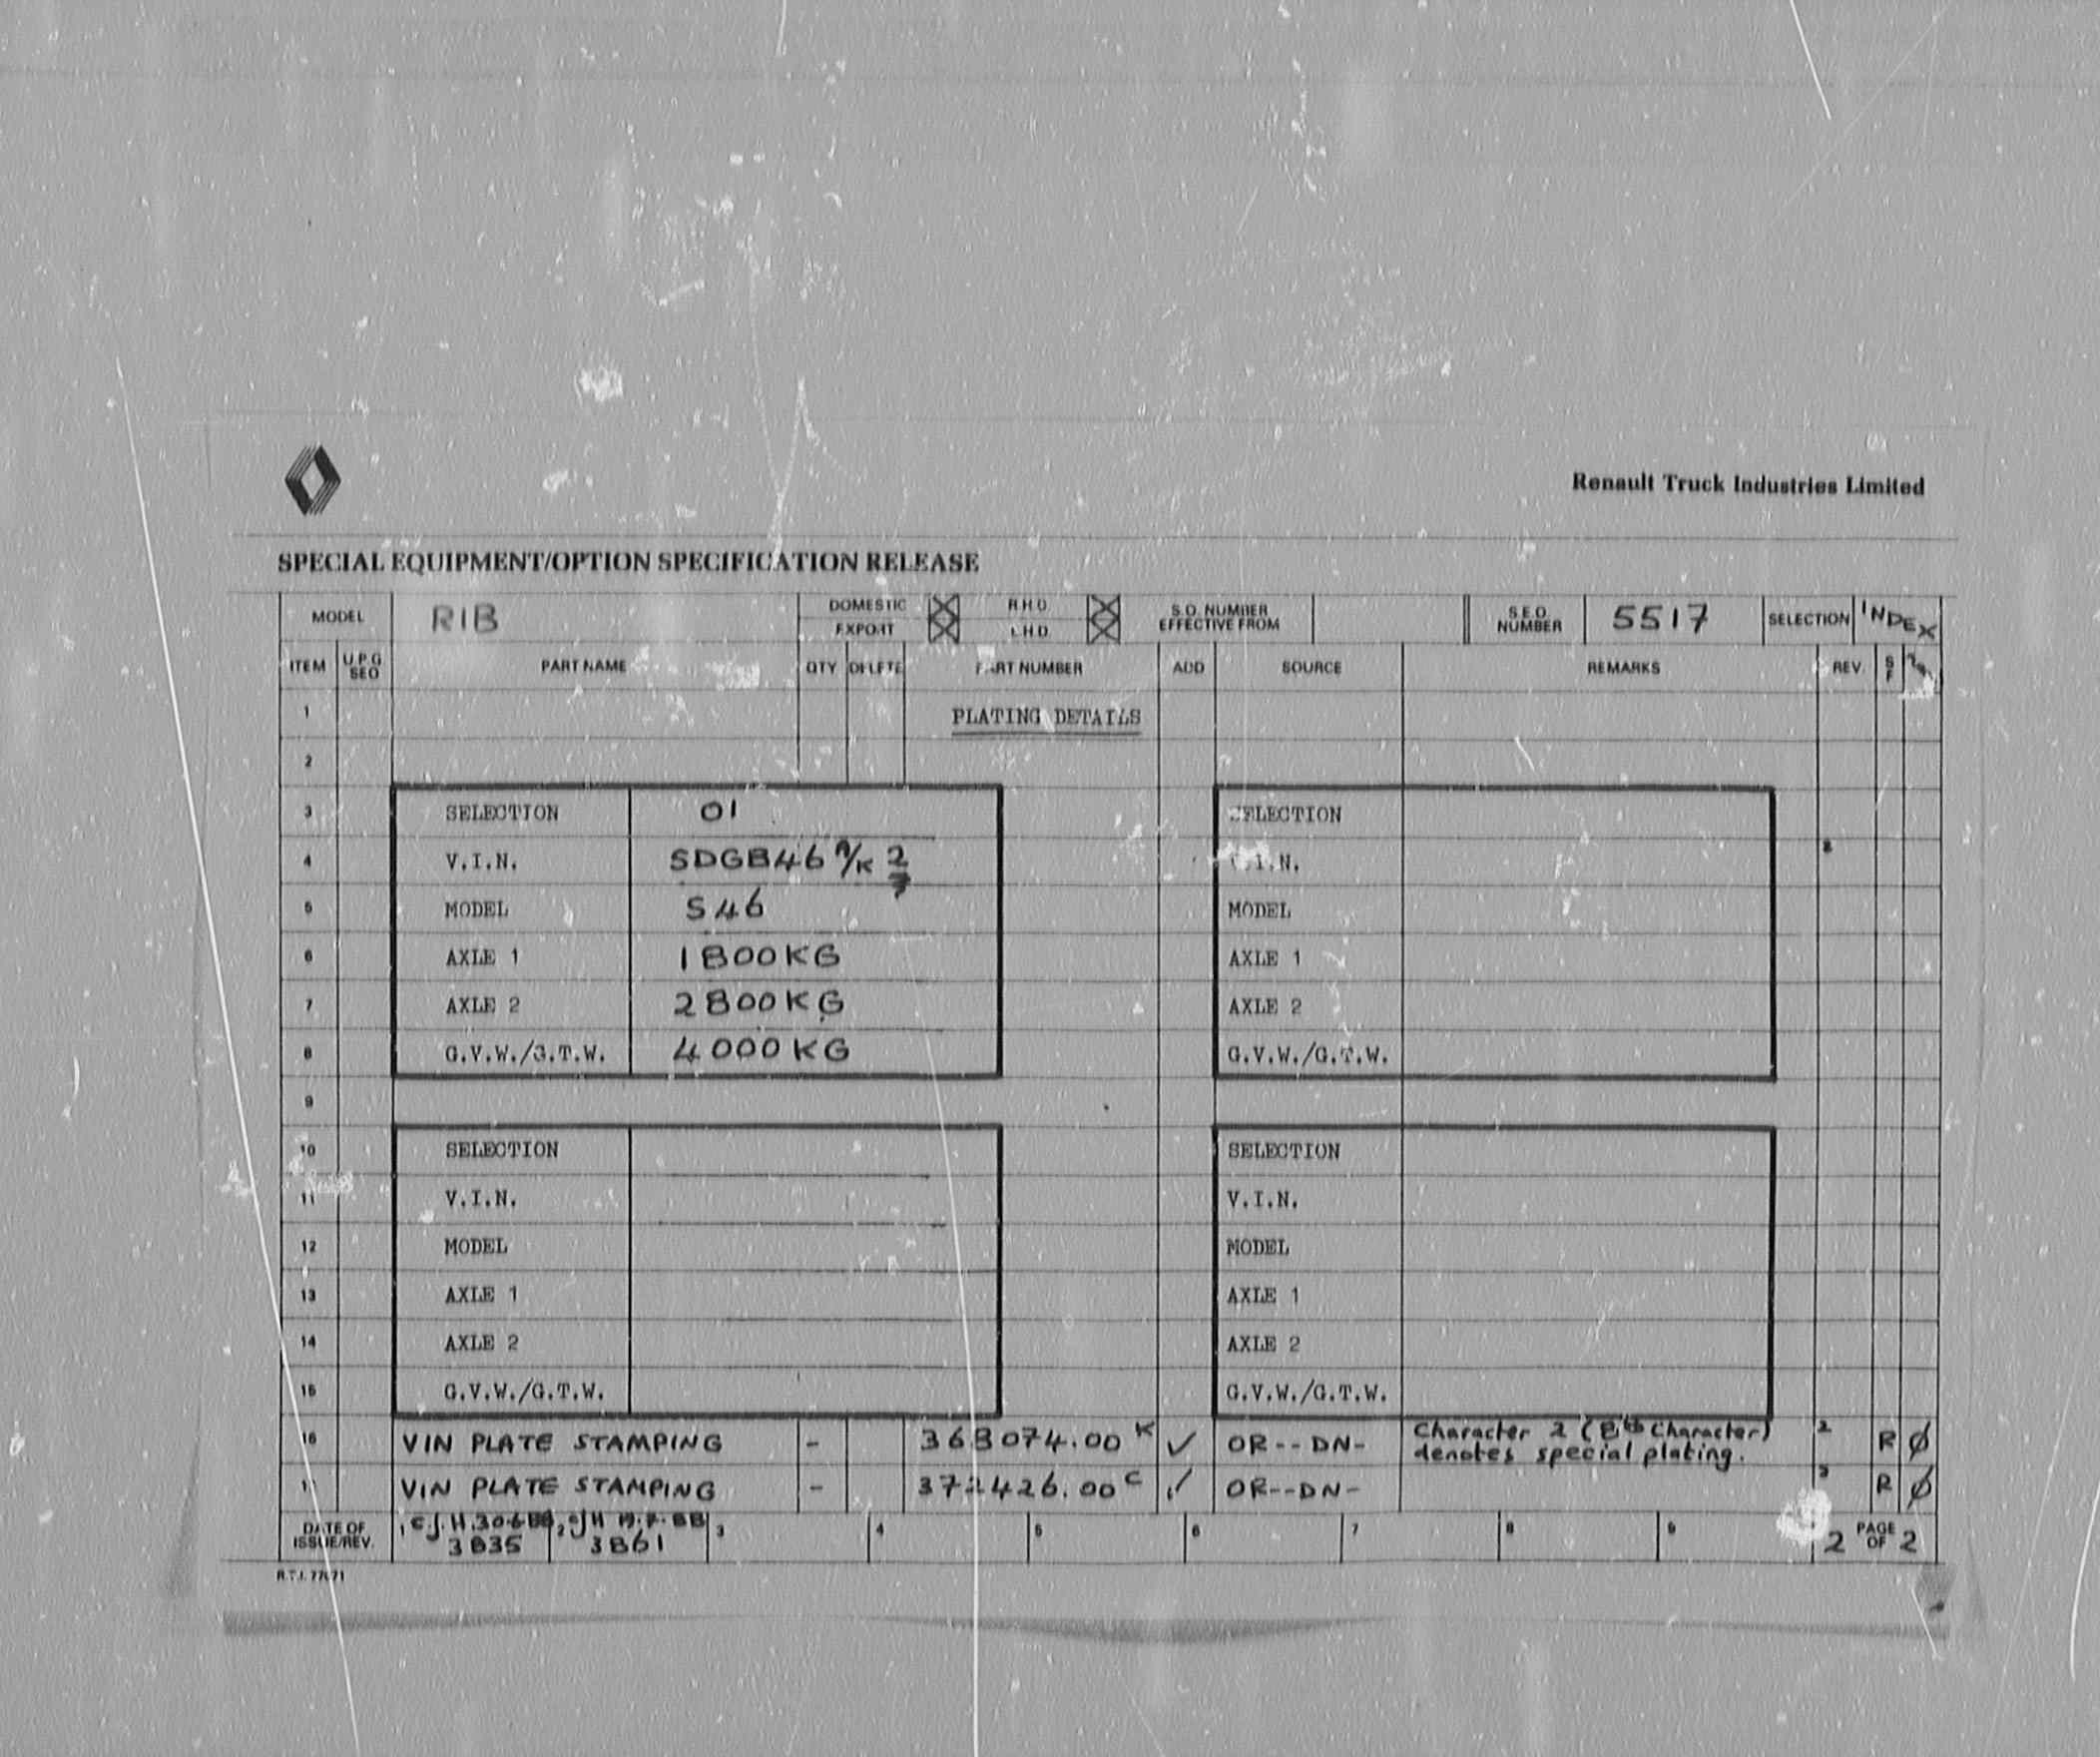 Renault Truck Industries Limited
SPECIAL EQUIPMENT/OPTION SPECIFICATION RELEASE
MODEL R1B DOMESTIC R.H.D. S.O. NUMBER EFFECTIVE FROM S.E.O. NUMBER 5517 SELECTION INDEX
EXPORT L.H.D.
ITEM U.P.G SEQ PART NAME QTY DELETE PART NUMBER ADD SOURCE REMARKS REV. S F
1 PLATING DETAILS
2
3 SELECTION 01 SELECTION
4 V.I.N. SDGB46 /K 2 V.I.N.
7
5 MODEL S46 MODEL
6 AXLE 1 1800KG AXLE 1
7 AXLE 2 2800KG AXLE 2
8 G.V.W./G.T.W. 4000KG G.V.W./G.T.W.
9
10 SELECTION SELECTION
11 V.I.N. V.I.N.
12 MODEL MODEL
13 AXLE 1 AXLE 1
14 AXLE 2 AXLE 2
15 G.V.W./G.T.W. G.V.W./G.T.W.
16 VIN PLATE STAMPING - 368074.00 K ✓ OR--DN- Character 2 (8th Character) 2 R Ø
denotes special plating.
17 VIN PLATE STAMPING - 372426.00 C ✓ OR--DN- R Ø
DATE OF ISSUE/REV. 1 C.J.H. 30.6.88 2 CJH 19.7.88 3 4 5 6 7 8 9 2 PAGE OF 2
3835 3861